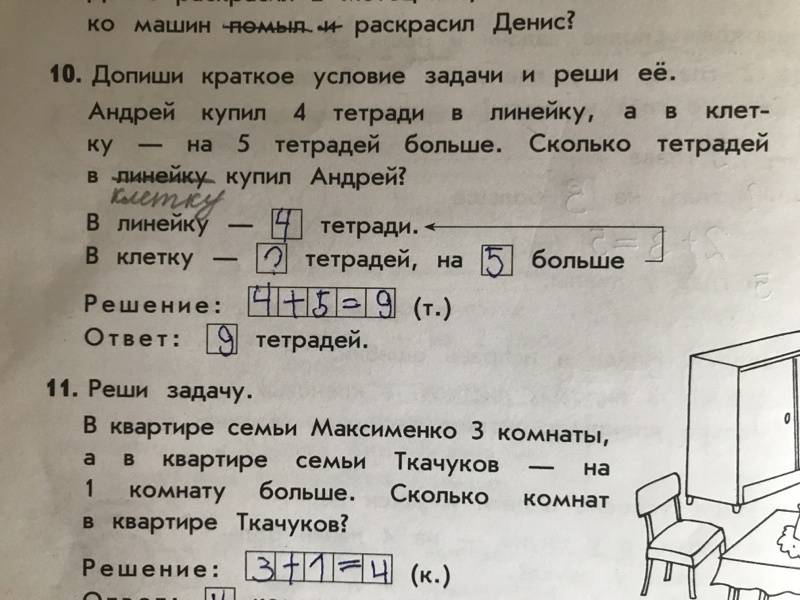 ко машин помыл и раскрасил Денис?
10. Допиши краткое условие задачи и реши её.
Андрей купил 4 тетради в линейку, а в клет-
ку — на 5 тетрадей больше. Сколько тетрадей
в линейку купил Андрей?
клетку
В линейку — 4 тетради.
В клетку — ? тетрадей, на 5 больше
Решение: 4+5=9 (т.)
Ответ: 9 тетрадей.
11. Реши задачу.
В квартире семьи Максименко 3 комнаты,
а в квартире семьи Ткачуков — на
1 комнату больше. Сколько комнат
в квартире Ткачуков?
Решение: 3+1=4 (к.)
Ответ: 4